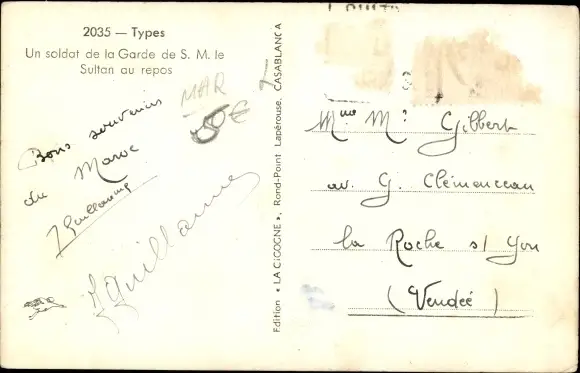 2035 — Types
Un soldat de la Garde de S. M. le
Sultan au repos
MAR
50€
Bons souvenirs
du Maroc
J Guillaume
J Guillaume
Edition « LA CIGOGNE », Rond-Point Lapérouse, CASABLANCA
Mme M. Gilbert
av. G. Clémenceau
la Roche s/ Yon
(Vendée)